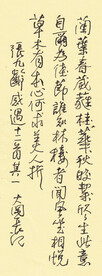 蘭葉春葳蕤桂華秋皎潔欣欣此生意
自爾為佳節誰知林棲者聞風坐相悅
草木有本心何求美人折
張九齡感遇十二首其一